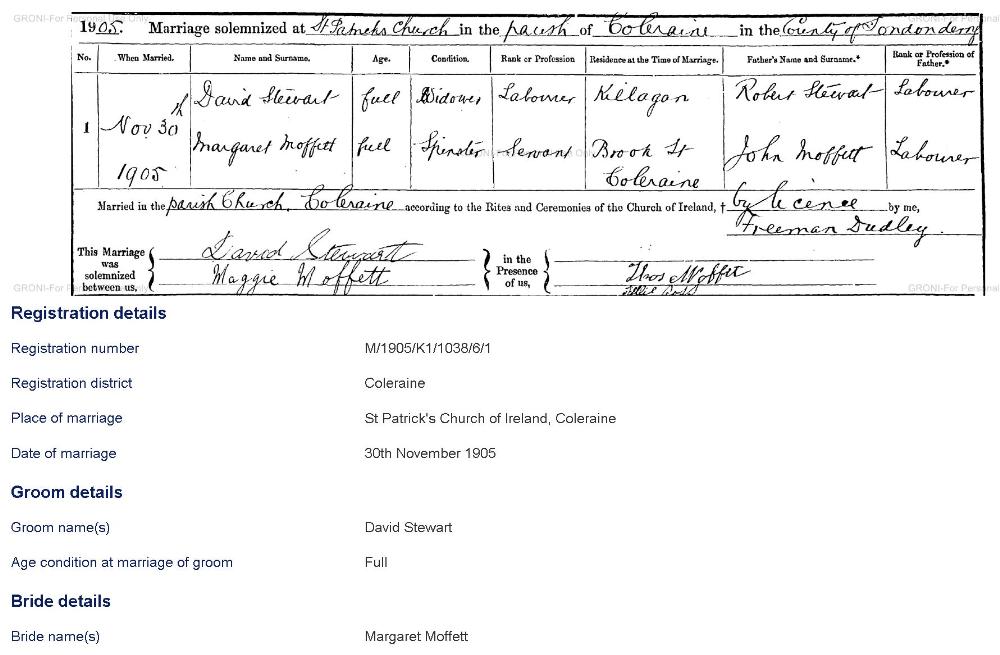 GRONI-For Personal Use Only
GRONI-For Personal
1905. Marriage solemnized at St Patricks Church in the parish of Coleraine in the County of Londonderry
No. When Married. Name and Surname. Age. Condition. Rank or Profession Residence at the Time of Marriage. Father's Name and Surname.* Rank or Profession of Father.*
David Stewart full Widower Labourer Killagan Robert Stewart Labourer
1 Nov 30th 1905
Margaret Moffett full Spinster Servant Brook St Coleraine John Moffett Labourer
Married in the parish Church, Coleraine according to the Rites and Ceremonies of the Church of Ireland, † by licence by me,
Freeman Dudley.
This Marriage was solemnized between us, { David Stewart
Maggie Moffett } in the Presence of us, { Thos Moffet
GRONI-For Personal Use Only
GRONI-For Personal
Registration details
Registration number M/1905/K1/1038/6/1
Registration district Coleraine
Place of marriage St Patrick's Church of Ireland, Coleraine
Date of marriage 30th November 1905
Groom details
Groom name(s) David Stewart
Age condition at marriage of groom Full
Bride details
Bride name(s) Margaret Moffett